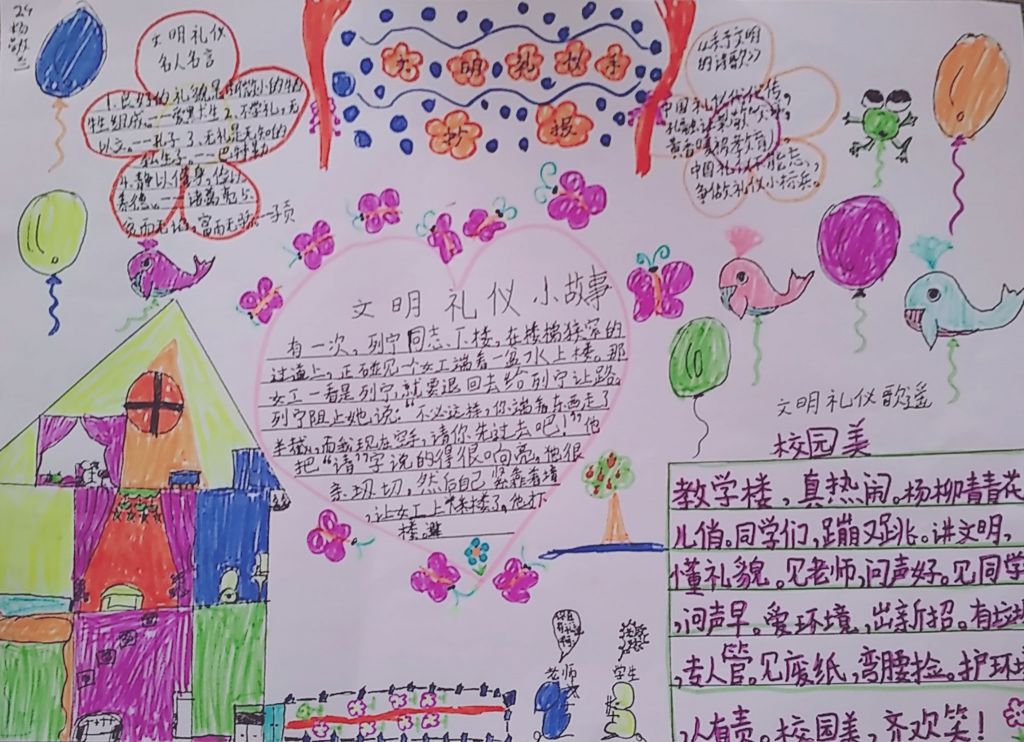 24
杨
文明礼仪
名人名言
1.良好的礼貌是由微小的牺
牲组成。——爱默生 2、不学礼,无
以立。——孔子 3、无礼是无知的
私生子。——巴特勒
4.静以修身,俭以
养德。——诸葛亮 5、
贫而无谄,富而无骄。—子贡
文明礼仪手
抄报
《关于文明
的诗歌》
中国礼仪代代传,
中国礼仪不能忘,
争做礼仪小标兵。
文明礼仪小故事
有一次,列宁同志下楼,在楼梯狭窄的
过道上,正碰见一个女工端着一盆水上楼。那
女工一看是列宁,就要退回去给列宁让路。
列宁阻止她说:“不必这样,你端着东西走了
半截,而我现在空手,请你先过去吧!”他
把“请”字说的得很响亮,他很
亲切,然后自己紧靠着墙
,让女工上楼了,他才下
楼。
文明礼仪歌遥
校园美
教学楼,真热闹。杨柳青青花
儿俏。同学们,蹦又跳。讲文明,
懂礼貌。见老师,问声好。见同学
,问声早。爱环境,出新招。有垃圾
,专人管。见废纸,弯腰捡。护环境
,人有责。校园美,齐欢笑!
老师
学生